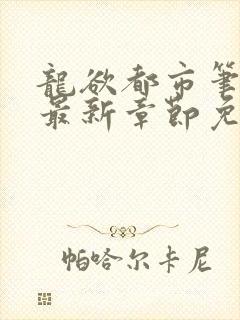 龍欲都市筆
最新章節免
帕哈尔卡尼